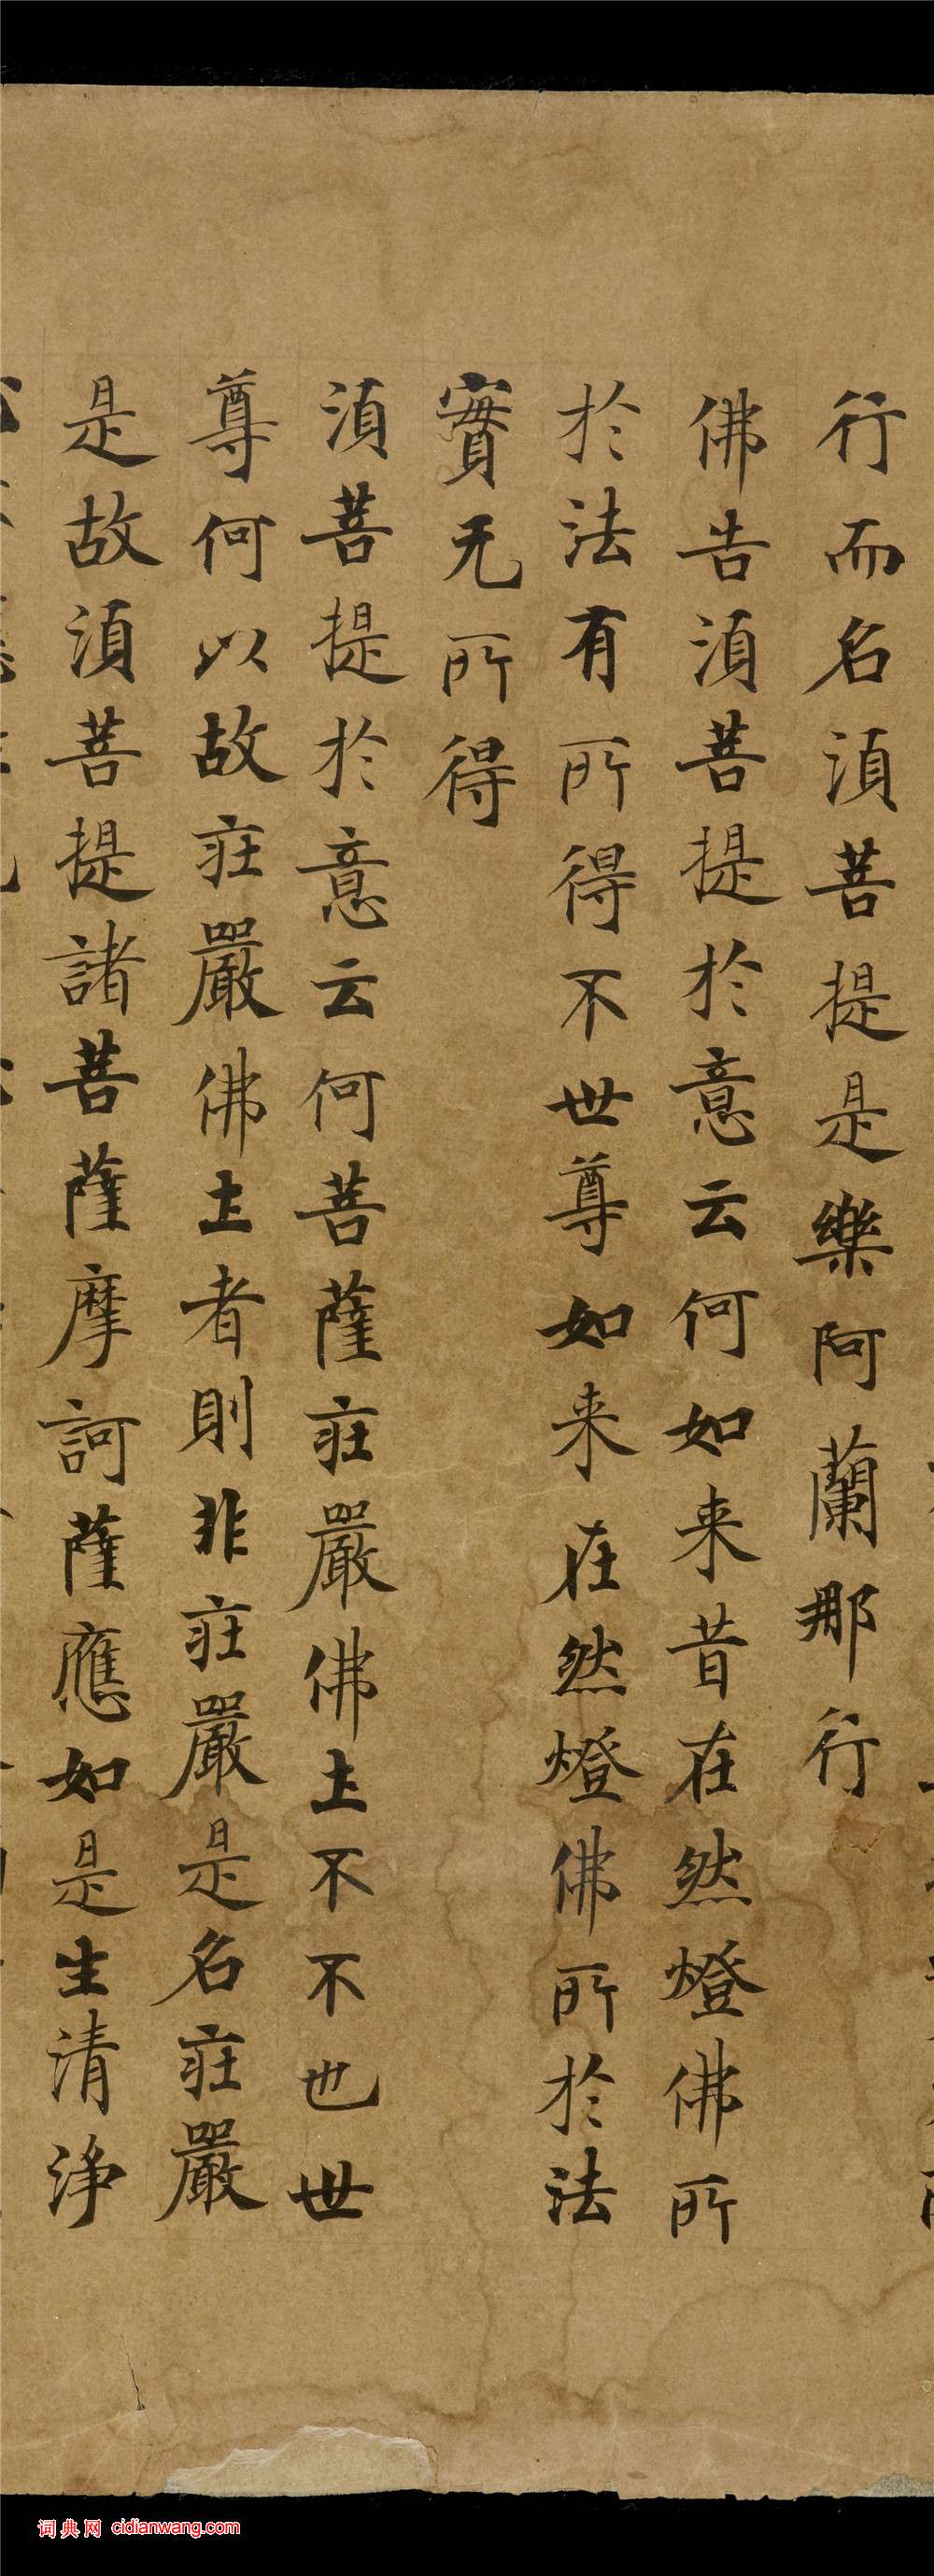 行而名湏菩提是樂阿蘭那行
佛告湏菩提於意云何如来昔在然燈佛所
於法有所得不世尊如来在然燈佛所於法
實无所得
湏菩提於意云何菩薩莊嚴佛土不不也世
尊何以故莊嚴佛土者則非莊嚴是名莊嚴
是故湏菩提諸菩薩摩訶薩應如是生清浄
词典网 cidianwang.com